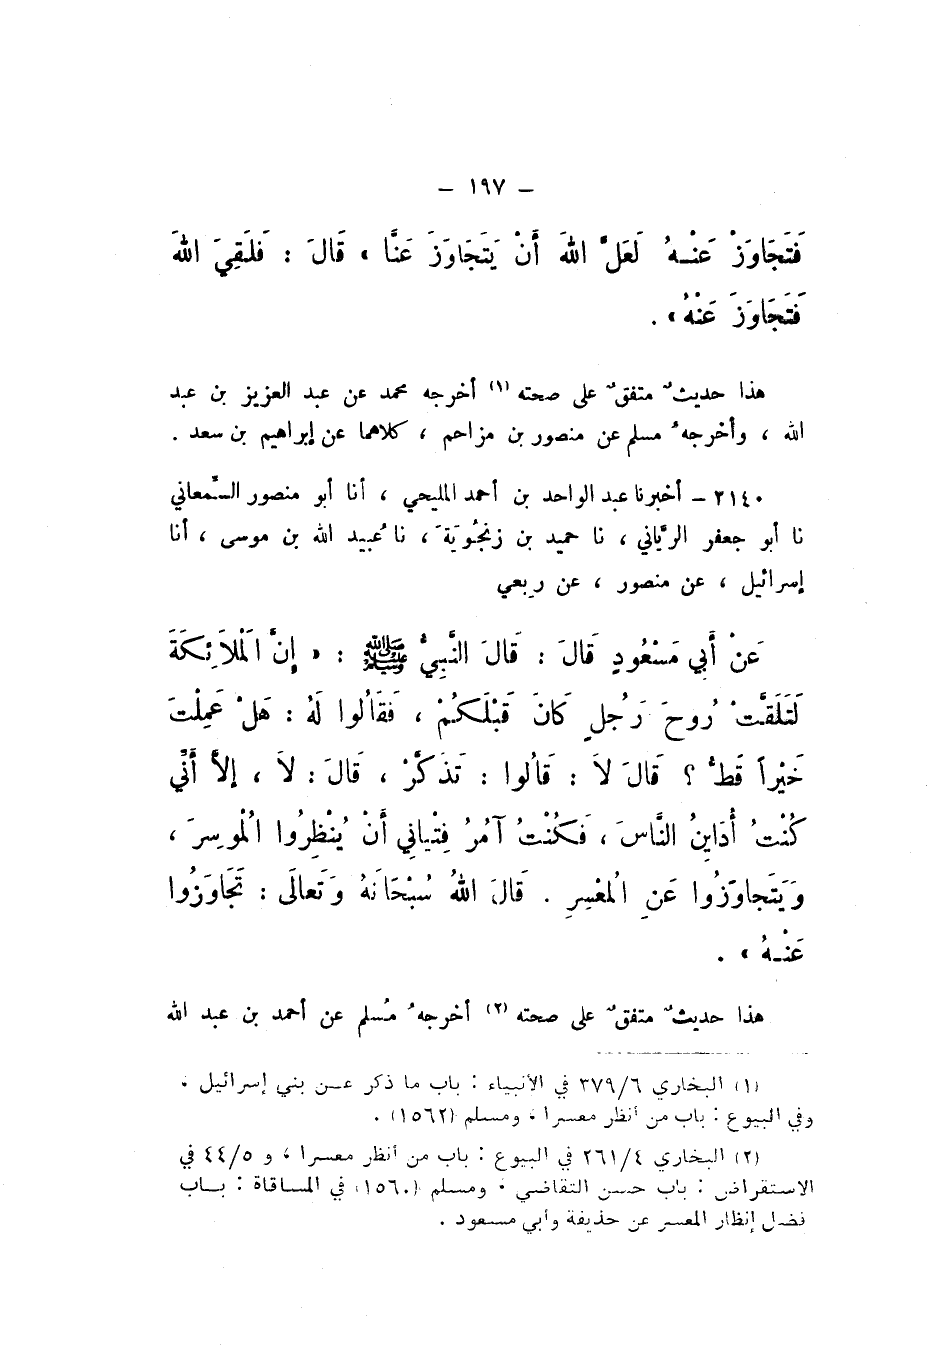 – ١٩٧ –
فَتَجَاوَزْ عَنْـهُ لَعَلَّ اللهَ أَنْ يَتَجَاوَزَ عَنَّا » قَالَ : فَلَقِيَ اللهَ
فَتَجَاوَزَ عَنْهُ » .
هذا حديثٌ متفقٌ على صحته (١) أخرجه محمد عن عبد العزيز بن عبد
الله ، وأخرجهُ مسلم عن منصور بن مزاحم ، كلاهما عن إبراهيم بن سعد .
٢١٤٠ – أخبرنا عبد الواحد بن أحمد المليحي ، أنا أبو منصور السَّمعاني
نا أبو جعفر الرَّياني ، نا حميد بن زنجُويَةَ ، نا عُبيد الله بن موسى ، أنا
إسرائيل ، عن منصور ، عن رِبعي
عَنْ أَبِي مَسْعُودٍ قَالَ : قَالَ النَّبِيُّ ﷺ : « إِنَّ الْمَلاَئِكَةَ
لَتَلَقَّتْ رُوحَ رَجُلٍ كَانَ قَبْلَكُمْ ، فَقَالُوا لَهُ : هَلْ عَمِلْتَ
خَيْراً قَطُّ ؟ قَالَ لاَ : قَالُوا : تَذَكَّرْ ، قَالَ : لاَ ، إِلاَّ أَنِّي
كُنْتُ أُدَايِنُ النَّاسَ ، فَكُنْتُ آمُرُ فِتْيَانِي أَنْ يُنْظِرُوا الْمُوسِرَ ،
وَيَتَجاوَزُوا عَنِ الْمُعْسِرِ . قَالَ اللهُ سُبْحَانَهُ وَتَعالَى : تَجَاوَزُوا
عَنْـهُ » .
هذا حديثٌ متفقٌ على صحته (٢) أخرجهُ مُسلم عن أحمد بن عبد الله
(١) البخاري ٣٧٩/٦ في الأنبياء : باب ما ذكر عـن بني إسرائيل .
وفي البيوع : باب من أنظر معسرا ، ومسلم (١٥٦٢) .
(٢) البخاري ٢٦١/٤ في البيوع : باب من أنظر معسرا ، و ٤٤/٥ في
الاستقراض : باب حسن التقاضي ، ومسلم (١٥٦٠) في المساقاة : بـاب
فضل إنظار المعسر عن حذيفة وأبي مسعود .